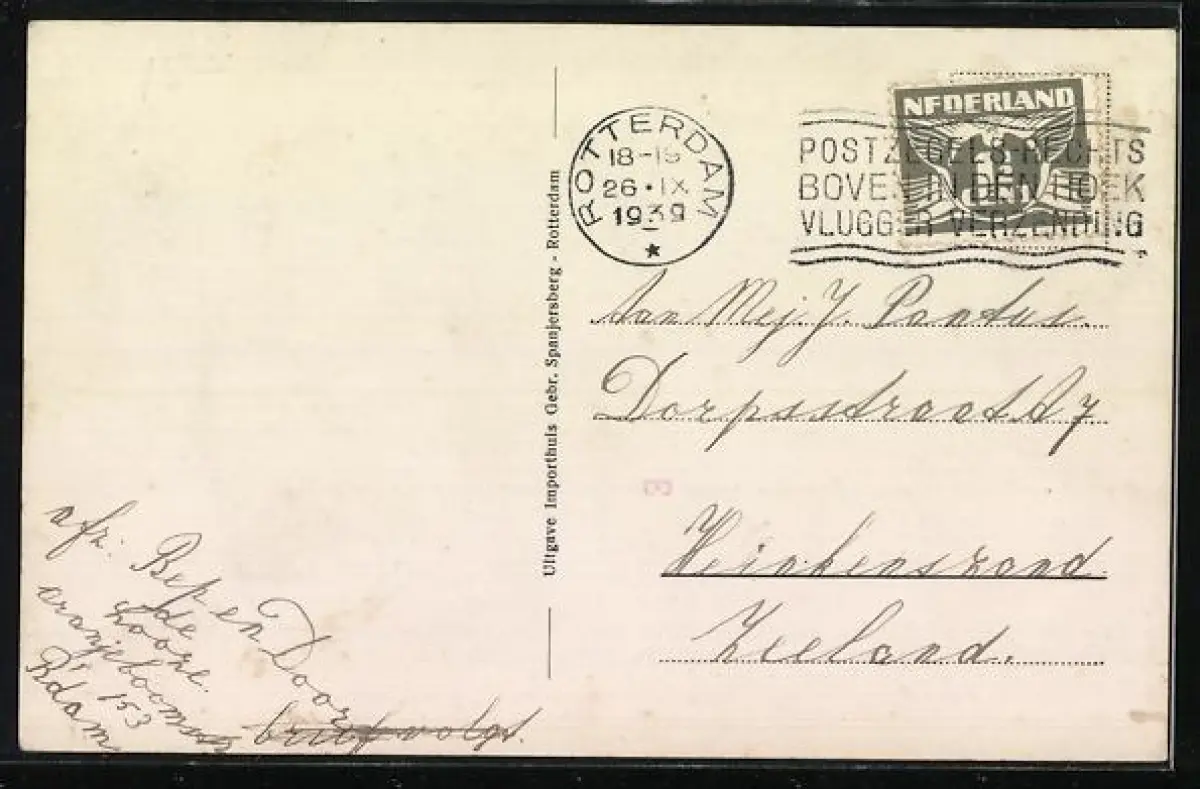 NEDERLAND
ROTTERDAM
18-19
26·IX
1939
POSTZEGELS RECHTS
BOVEN IN DEN HOEK
VLUGGER VERZENDING
Uitgave Importhuis Gebr. Spanjersberg - Rotterdam
Aan Mej J. Pootus.
Dorpsstraat A 7
Heinkenszand
Zeeland.
afz: Bep en Door
de
Looze.
oranjeboomstr
153
R'dam
brief volgt.